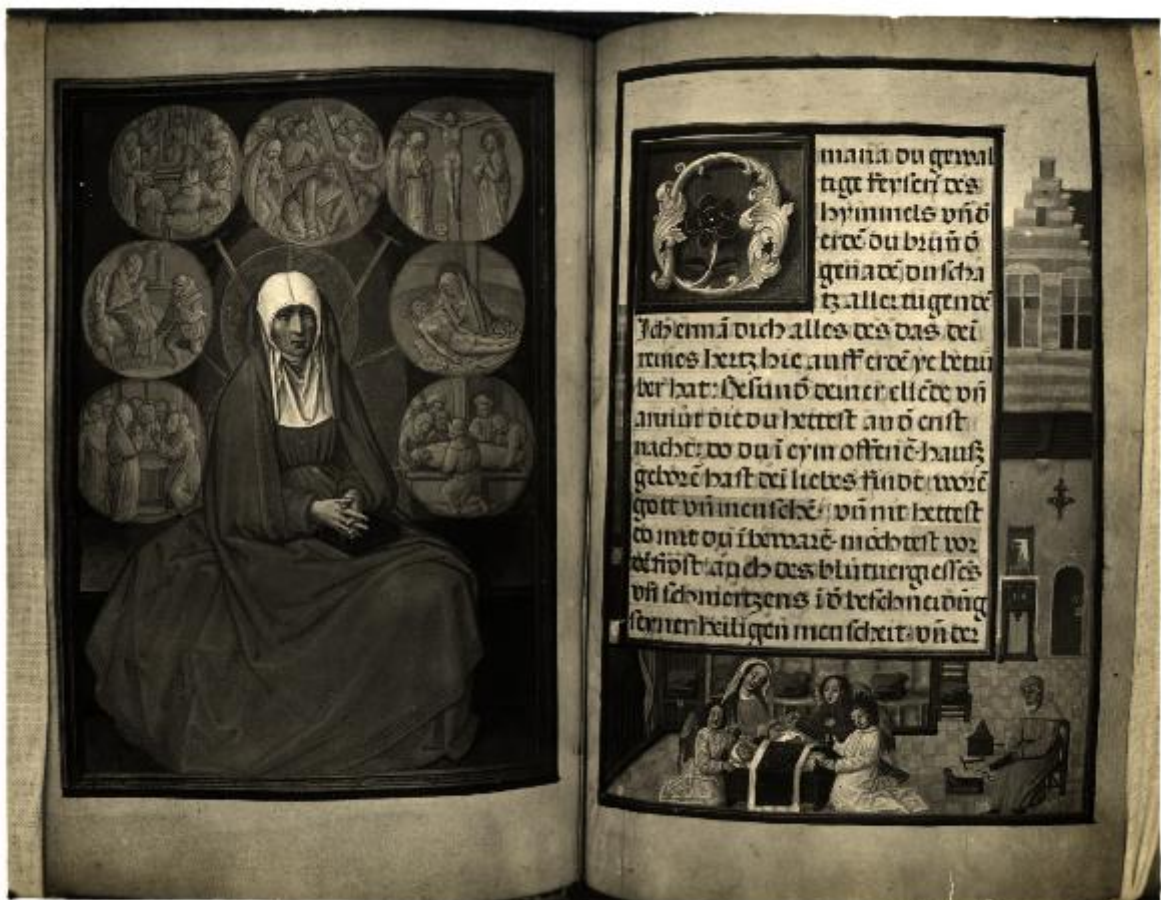 O maria du gewal
tige keyseri des
hymmels vn̄ d̄
erdē du brun̄ d̄
genadē du scha
tz aller tugendē
Ich erman̄ dich alles des das dei
reines hertz hie auff erdē ye betru
bet hat: Besund̄ deiner ellēde vn̄
armůt die du hettest an d̄ crist
nacht: do du ī eym offenē hauß
geborē hast dei liebes kindt worē
gott vn̄ menschē: vn̄ nit hettest
do mit du ī bewarē mochtest vor
auch des blůtuergiesses
vn̄ schmertzens ī d̄ beschneidūg
seyner heiligen menscheit: vn̄ der